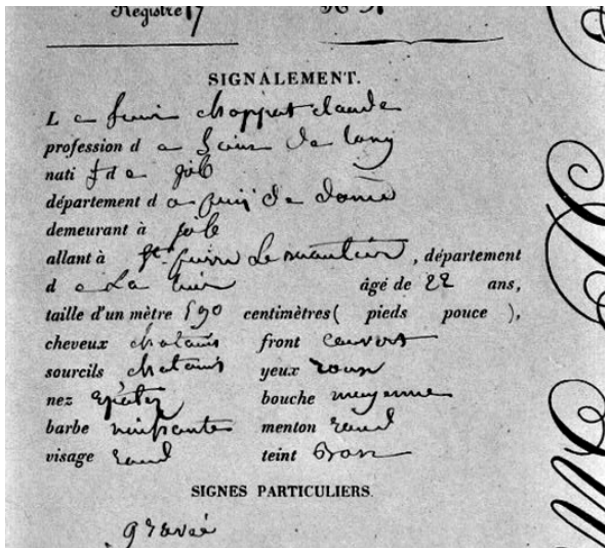 Registre 17 N°
SIGNALEMENT.
L e choppat claude
profession d e de long
natif de job
département d e puis de dome
demeurant à job
allant à St. pierre Le moutier, département
d e La âgé de 22 ans,
taille d'un mètre 590 centimètres ( pieds pouce ),
cheveux chatains front couvert
sourcils chatains yeux roux
nez epaté bouche moyenne
barbe naissante menton rond
visage rond teint
SIGNES PARTICULIERS.
gravé